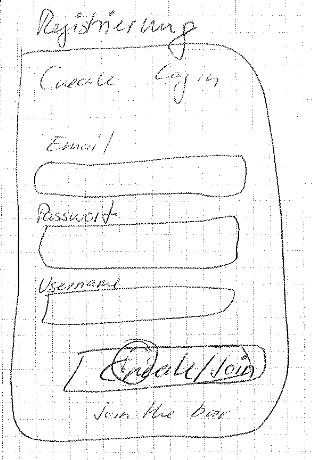 Registrierung
Create Log in
Email
Passwort
Username
Create/Join
Join the bar